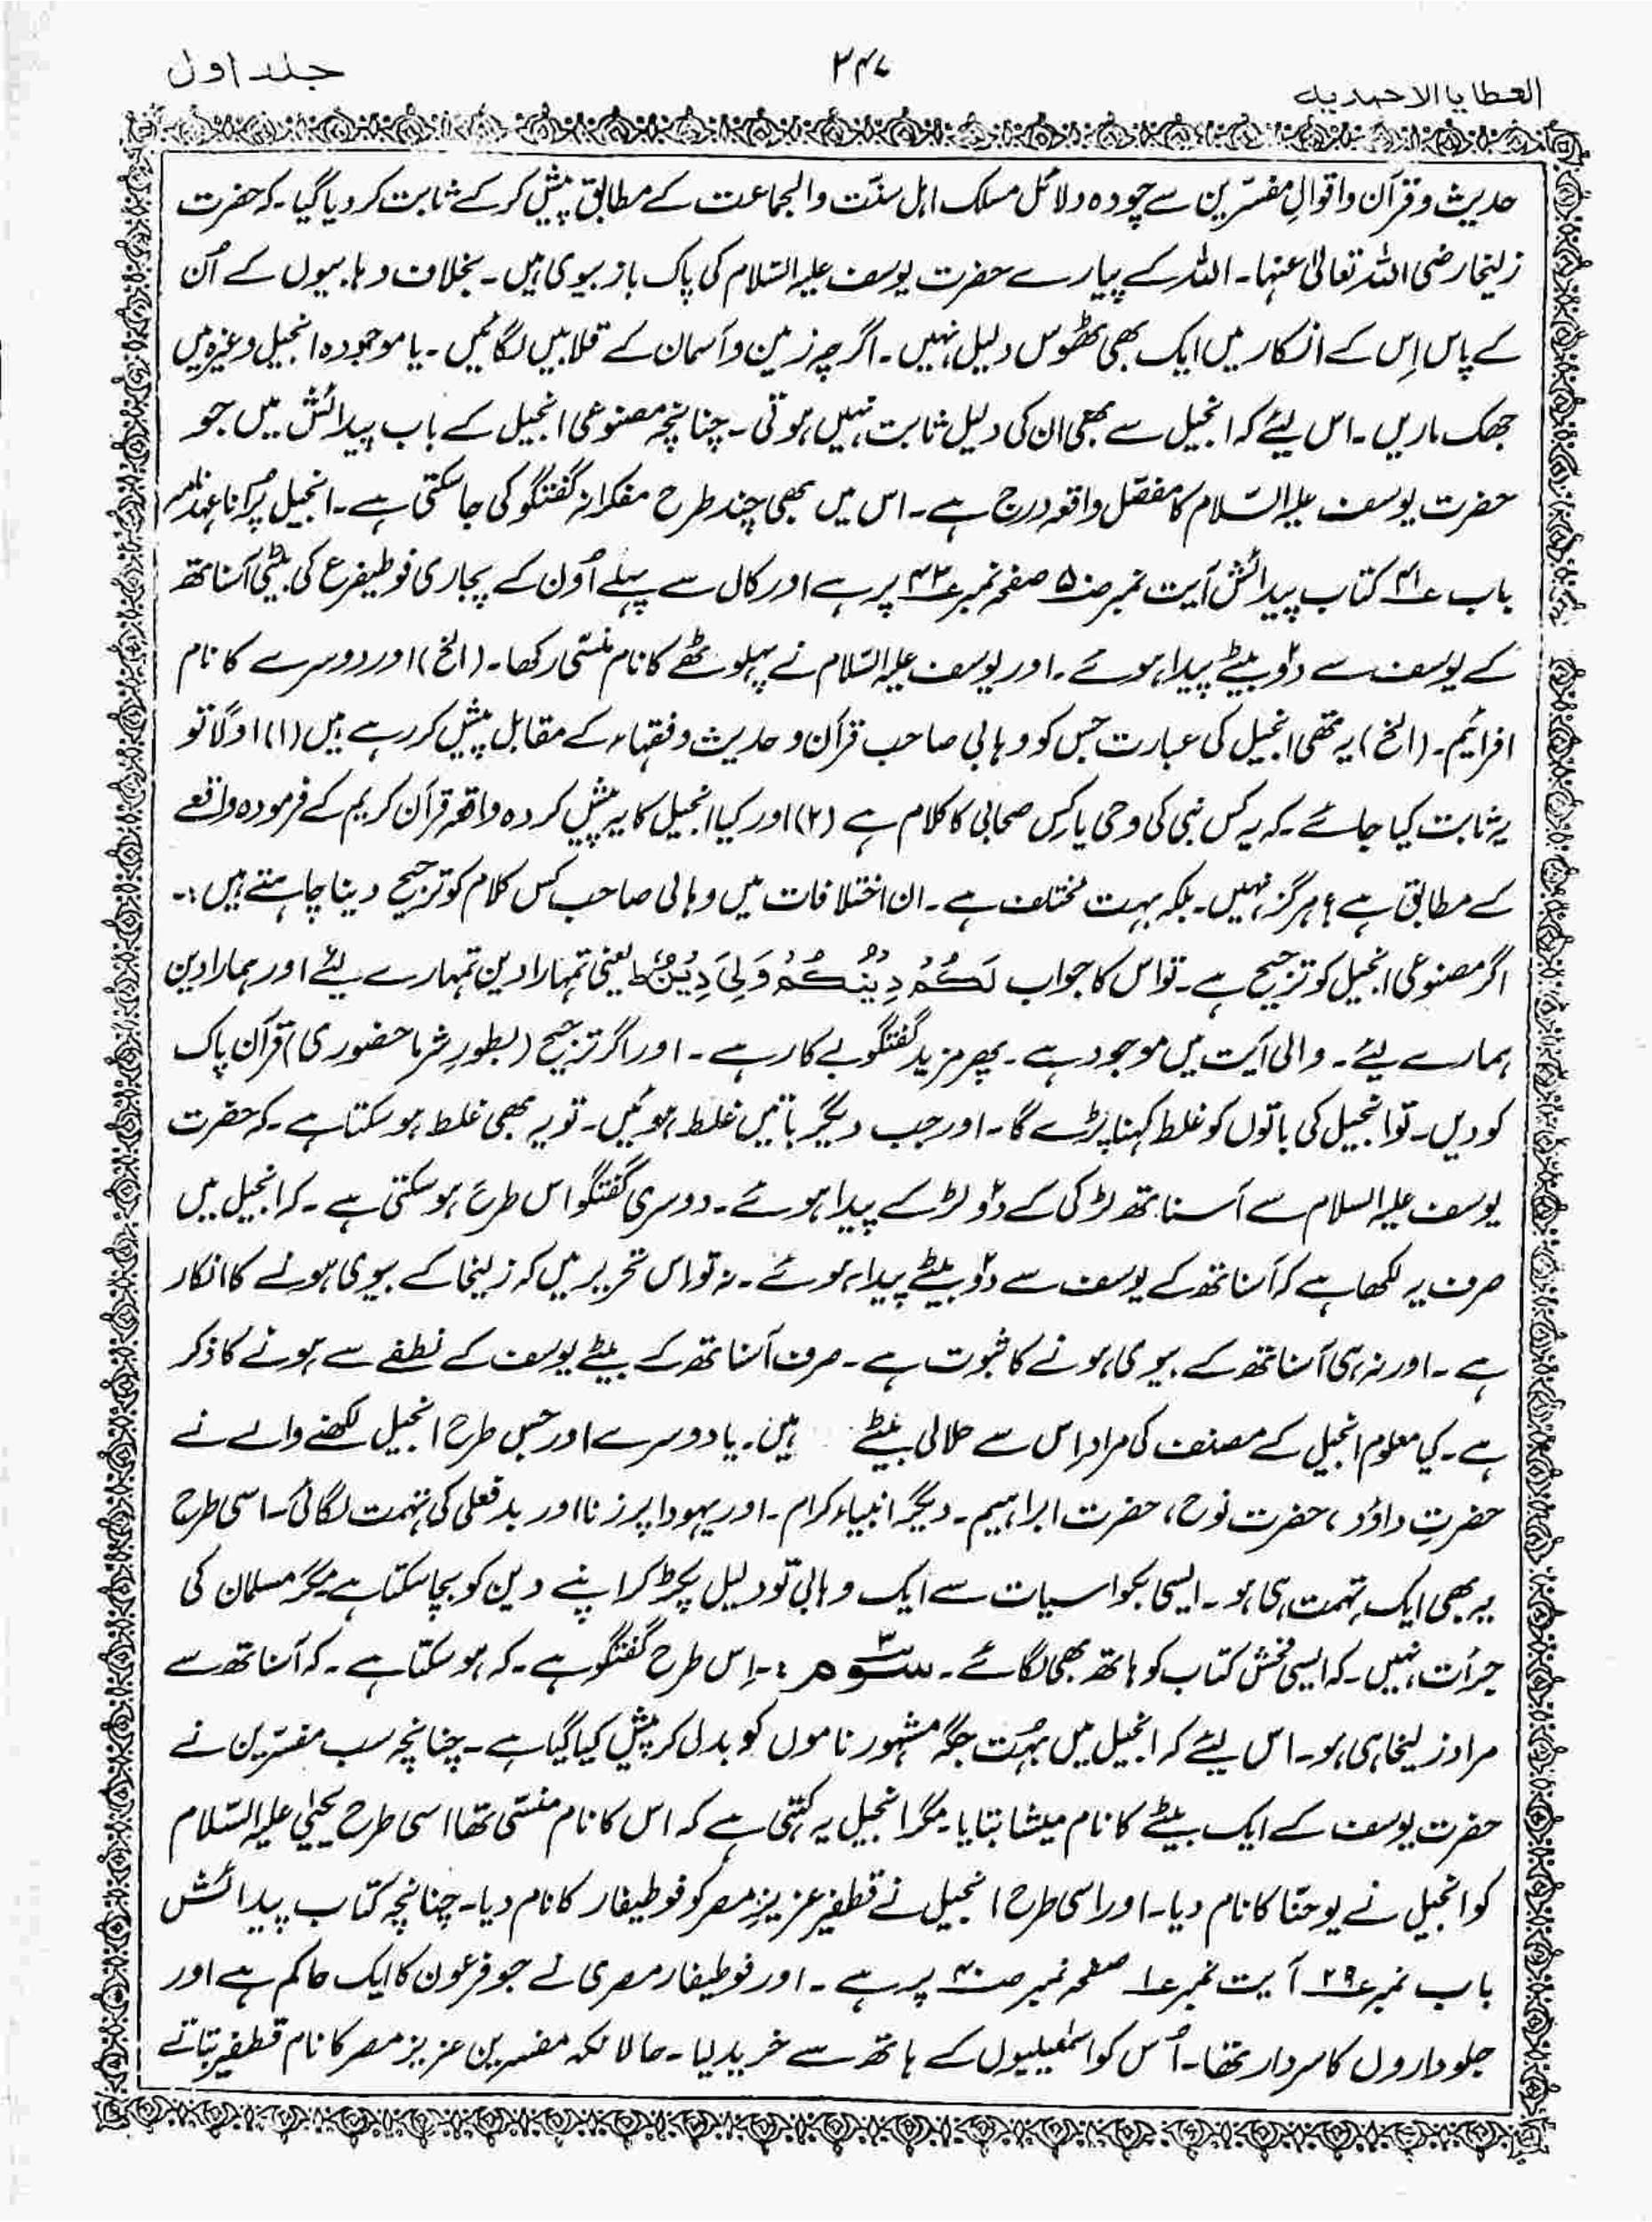 العطایا الاحمدیہ
۳۴۷
جلد اول
حدیث و قرآن و اقوالِ مفسّرین سے چودہ دلائل مسلک اہل سنّت والجماعت کے مطابق پیش کر کے ثابت کر دیا گیا۔ کہ حضرت
زلیخا رضی اللہ تعالیٰ عنہا۔ اللہ کے پیارے حضرت یوسف علیہ السّلام کی پاک باز بیوی ہیں۔ بخلاف وہابیوں کے اُن
کے پاس اِس کے انکار میں ایک بھی ٹھوس دلیل نہیں۔ اگرچہ زمین و آسمان کے قلابیں لگائیں۔ یا موجودہ انجیل وغیرہ میں
جھک ماریں۔ اس لیئے کہ انجیل سے بھی ان کی دلیل ثابت نہیں ہوتی۔ چنانچہ مصنوعی انجیل کے باب پیدائش میں جو
حضرت یوسف علیہ السّلام کا مفصّل واقعہ درج ہے۔ اس میں بھی چند طرح مفکرانہ گفتگو کی جا سکتی ہے۔ انجیل پُرانا عہد نامہ
باب ؏۴۱ کتاب پیدائش آیت نمبر ۵۰ صفحہ نمبر ۴۳ پر ہے اور کال سے پہلے اُون کے پجاری فوطیفرع کی بیٹی آسناتھ
کے یوسف سے دوؔ بیٹے پیدا ہوئے۔ اور یوسف علیہ السّلام نے پہلوٹھے کا نام منسّی رکھا۔ (الخ) اور دوسرے کا نام
افرائیم۔ (الخ) یہ تھی انجیل کی عبارت جس کو وہابی صاحب قرآن و حدیث و فقہاء کے مقابل پیش کر رہے ہیں (۱) اولًا تو
یہ ثابت کیا جائے کہ یہ کس نبی کی وحی یا کس صحابی کا کلام ہے (۲) اور کیا انجیل کا یہ پیش کردہ واقعہ قرآن کریم کے فرمودہ واقعے
کے مطابق ہے؟ ہرگز نہیں۔ بلکہ بہت مختلف ہے۔ ان اختلافات میں وہابی صاحب کس کلام کو ترجیح دینا چاہتے ہیں:۔
اگر مصنوعی انجیل کو ترجیح ہے۔ تو اس کا جواب لَكُمْ دِيْنُكُمْ وَلِيَ دِيْنِ ط یعنی تمہارا دین تمہارے لیئے اور ہمارا دین
ہمارے لیئے۔ والی آیت میں موجود ہے۔ پھر مزید گفتگو بے کار ہے۔ اور اگر ترجیح (بطورِ شرما حضوری) قرآن پاک
کو دیں۔ تو انجیل کی باتوں کو غلط کہنا پڑے گا۔ اور جب دیگر باتیں غلط ہوئیں۔ تو یہ بھی غلط ہو سکتا ہے۔ کہ حضرت
یوسف علیہ السلام سے آسناتھ لڑکی کے دوؔ لڑکے پیدا ہوئے۔ دوسری گفتگو اس طرح ہو سکتی ہے۔ کہ انجیل میں
صرف یہ لکھا ہے کہ آسناتھ کے یوسف سے دوؔ بیٹے پیدا ہوئے۔ نہ تو اس تحریر میں کہ زلیخا کے بیوی ہونے کا انکار
ہے۔ اور نہ ہی آسناتھ کے بیوی ہونے کا ثبوت ہے۔ صرف آسناتھ کے بیٹے یوسف کے نطفے سے ہونے کا ذکر
ہے۔ کیا معلوم انجیل کے مصنف کی مراد اس سے حلالی بیٹے ہیں۔ یا دوسرے اور جس طرح انجیل لکھنے والے نے
حضرتِ داؤد، حضرت نوح، حضرت ابراہیم۔ دیگر انبیاء کرام۔ اور یہودا پر زنا اور بدفعلی کی تہمت لگائی۔ اسی طرح
یہ بھی ایک تہمت ہی ہو۔ ایسی بکواسیات سے ایک وہابی تو دلیل پکڑ کر اپنے دین کو بچا سکتا ہے مگر مسلمان کی
جرأت نہیں۔ کہ ایسی فحش کتاب کو ہاتھ بھی لگائے۔ سوّم ۳:۔ اِس طرح گفتگو ہے۔ کہ ہو سکتا ہے۔ کہ آسناتھ سے
مراد زلیخا ہی ہو۔ اس لیئے کہ انجیل میں بہُت جگہ مشہور ناموں کو بدل کر پیش کیا گیا ہے۔ چنانچہ سب مفسّرین نے
حضرت یوسف کے ایک بیٹے کا نام میشا بتایا۔ مگر انجیل یہ کہتی ہے کہ اس کا نام منسّی تھا اسی طرح یحییٰ علیہ السّلام
کو انجیل نے یوحنّا کا نام دیا۔ اور اسی طرح انجیل نے قطفیر عزیزِ مصر کو فوطیفار کا نام دیا۔ چنانچہ کتاب پیدائش
باب نمبر ؏۲۹ آیت نمبر ؏۱ صفحہ نمبر ۴۰ پر ہے۔ اور فوطیفار مصری نے جو فرعون کا ایک حاکم ہے اور
جلوداروں کا سردار تھا۔ اُس کو اسمٰعیلیوں کے ہاتھ سے خرید لیا۔ حالانکہ مفسرین عزیز مصر کا نام قطفیر بتاتے